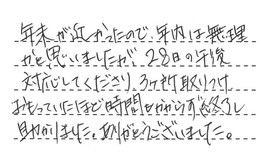 年末が近かったので、年内は無理
かと思いましたが、28日の午後
対応してくださり、3ヶ所取りつけ
おもっていたほど時間もかからず終了し
助かりました。ありがとうございました。